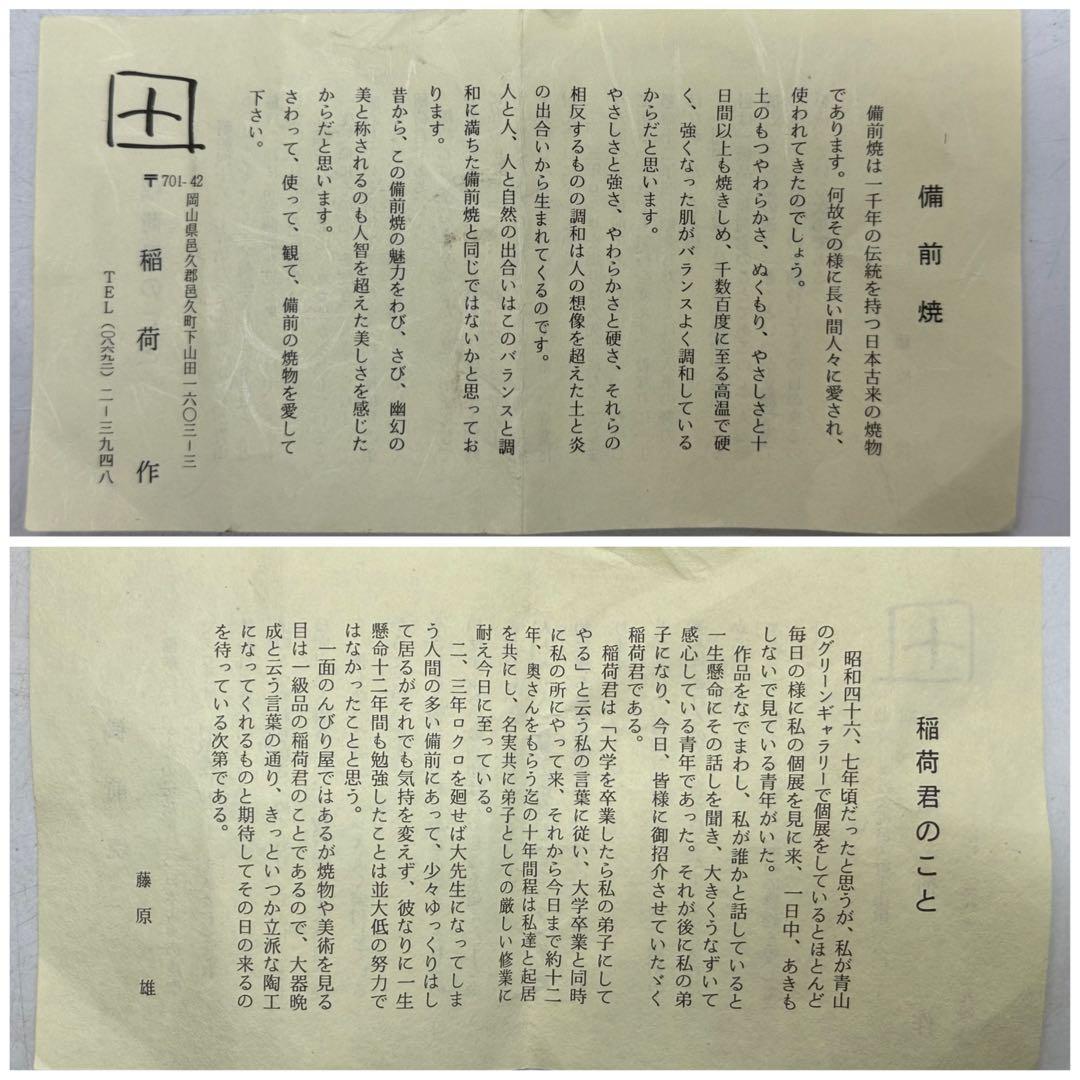 備前焼
備前焼は一千年の伝統を持つ日本古来の焼物
であります。何故その様に長い間人々に愛され、
使われてきたのでしょう。
土のもつやわらかさ、ぬくもり、やさしさと十
日間以上も焼きしめ、千数百度に至る高温で硬
く、強くなった肌がバランスよく調和している
からだと思います。
やさしさと強さ、やわらかさと硬さ、それらの
相反するものの調和は人の想像を超えた土と炎
の出合いから生まれてくるのです。
人と人、人と自然の出合いはこのバランスと調
和に満ちた備前焼と同じではないかと思ってお
ります。
昔から、この備前焼の魅力をわび、さび、幽幻の
美と称されるのも人智を超えた美しさを感じた
からだと思います。
さわって、使って、観て、備前の焼物を愛して
下さい。
〒701-42
岡山県邑久郡邑久町下山田一六〇三―三
稲荷 作
TEL(〇八六九二)二―三九四八
稲荷君のこと
昭和四十六、七年頃だったと思うが、私が青山
のグリーンギャラリーで個展をしているとほとんど
毎日の様に私の個展を見に来、一日中、あきも
しないで見ている青年がいた。
作品をなでまわし、私が誰かと話していると
一生懸命にその話しを聞き、大きくうなずいて
感心している青年であった。それが後に私の弟
子になり、今日、皆様に御招介させていたゞく
稲荷君である。
稲荷君は「大学を卒業したら私の弟子にして
やる」と云う私の言葉に従い、大学卒業と同時
に私の所にやって来、それから今日まで約十二
年、奥さんをもらう迄の十年間程は私達と起居
を共にし、名実共に弟子としての厳しい修業に
耐え今日に至っている。
二、三年ロクロを廻せば大先生になってしま
う人間の多い備前にあって、少々ゆっくりはし
て居るがそれでも気持を変えず、彼なりに一生
懸命十二年間も勉強したことは並大低の努力で
はなかったことと思う。
一面のんびり屋ではあるが焼物や美術を見る
目は一級品の稲荷君のことであるので、大器晩
成と云う言葉の通り、きっといつか立派な陶工
になってくれるものと期待してその日の来るの
を待っている次第である。
藤原 雄